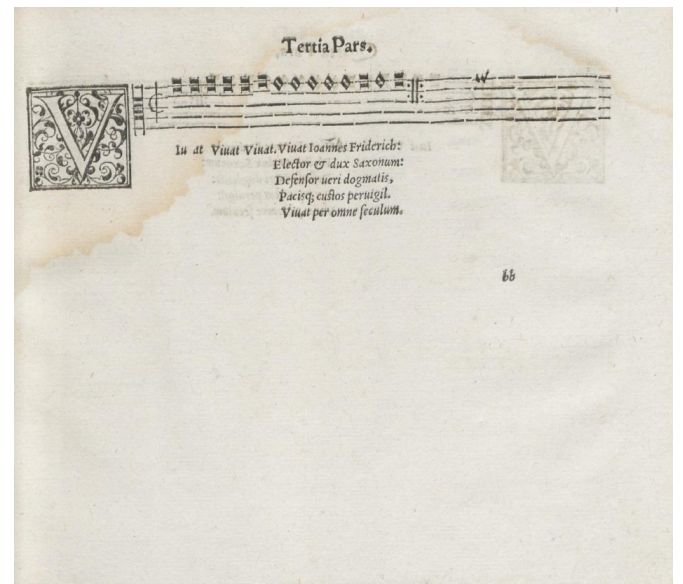 Tertia Pars.
VIu at Viuat Viuat. Viuat Ioannes Friderich:
Elector & dux Saxonum:
Defensor ueri dogmatis,
Pacisq; custos peruigil.
Viuat per omne seculum.
bb